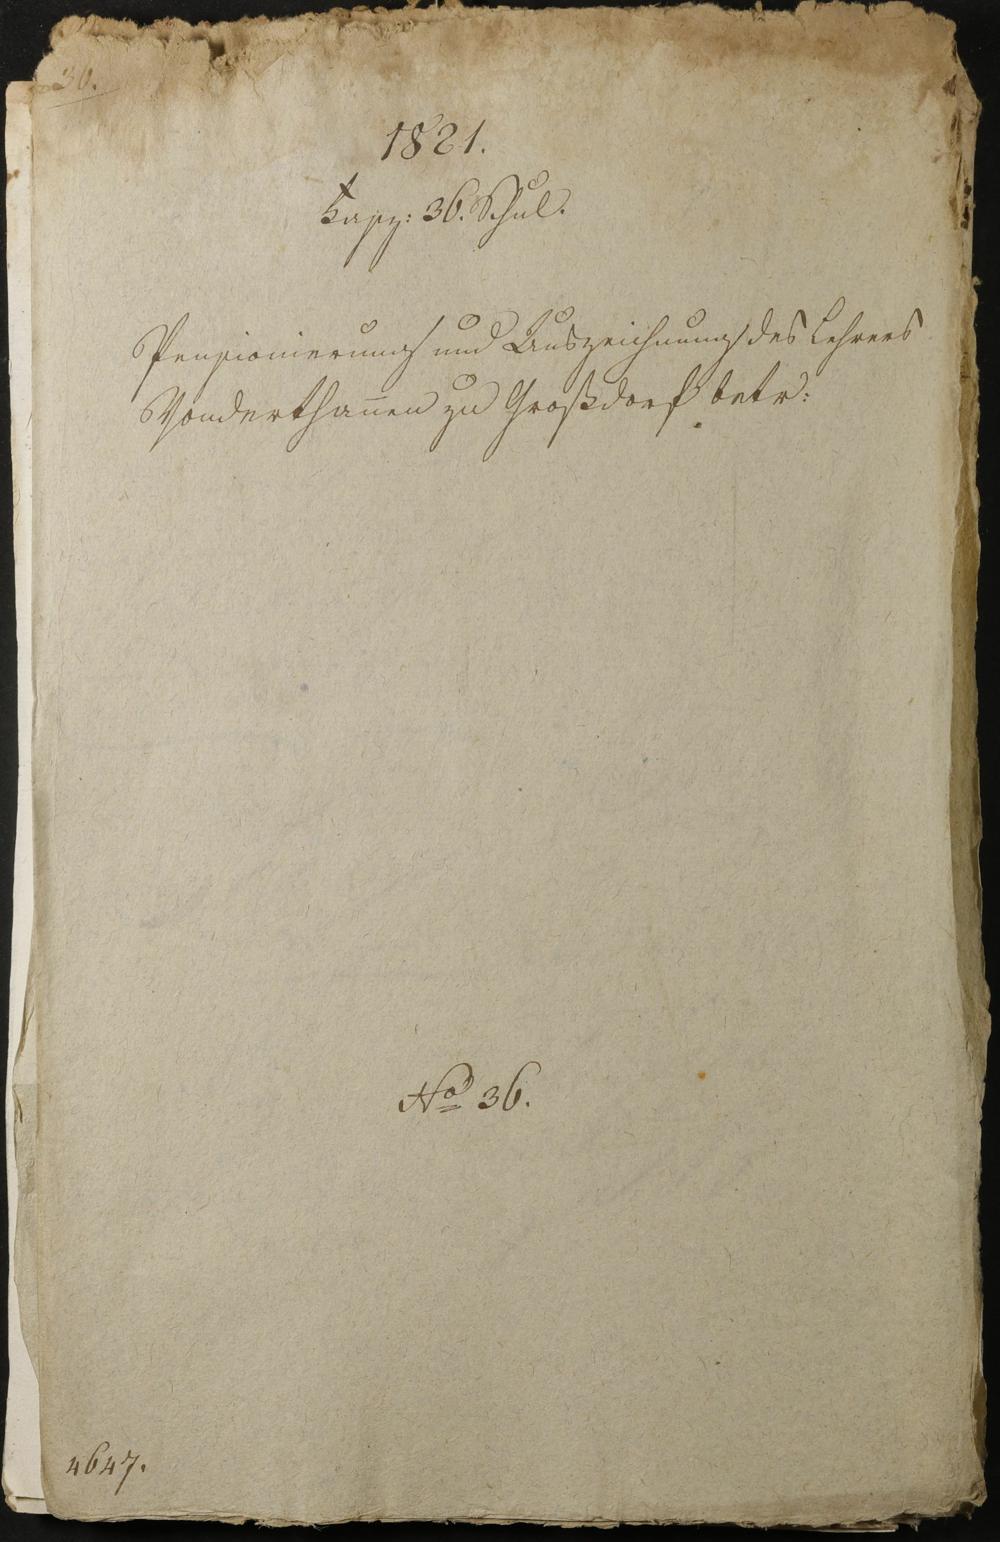 30.
1821.
36. Schul.
Pensionierung und Auszeichnung des Lehrers
Vonderthañen zu Großdorf betr:
No 36.
4647.